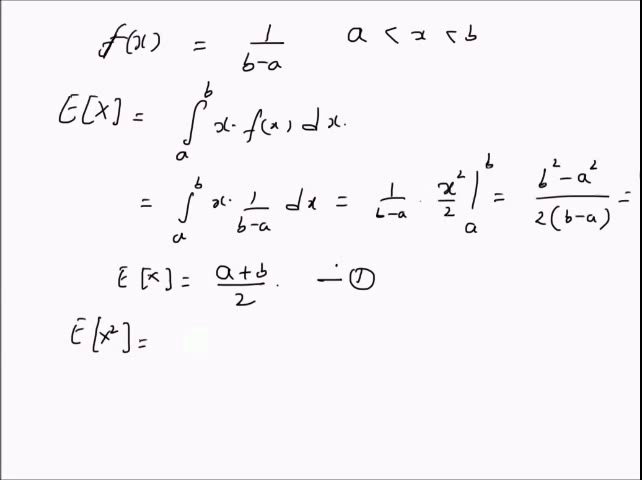 f(x) = 1/(b-a) a < x < b
E[X] = ∫_a^b x · f(x) dx.
= ∫_a^b x · 1/(b-a) dx = 1/(b-a) · x²/2 |_a^b = (b² - a²)/(2(b-a)) =
E[x] = (a+b)/2 . — ①
E[x²] =